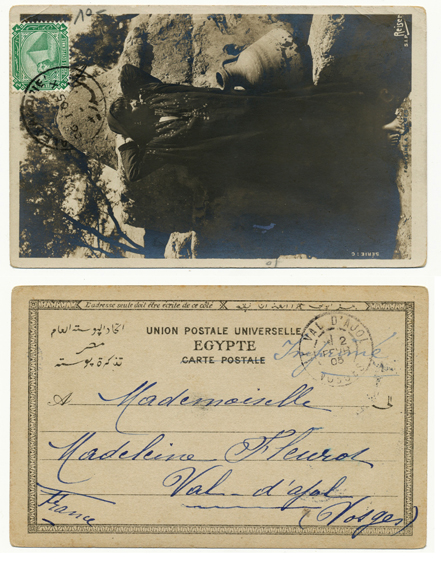 1º-
Reiser
L'adresse seule doit être écrite de ce côté
اتحاد البوسته العام
مصر
تذكرة بوسته
UNION POSTALE UNIVERSELLE
EGYPTE
CARTE POSTALE
VAL D'AJOL
2
FEVR
05
VOSGES
A Mademoiselle
Madeleine Fleurot
Val-d'ajol
(Vosges)
France